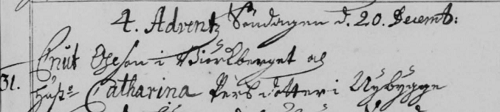 4. Advents Söndagen d. 20. Decemb:
Cnut Olsson i Biörckberget ock
31. hust: Catharina Pers dotter i Nybygge